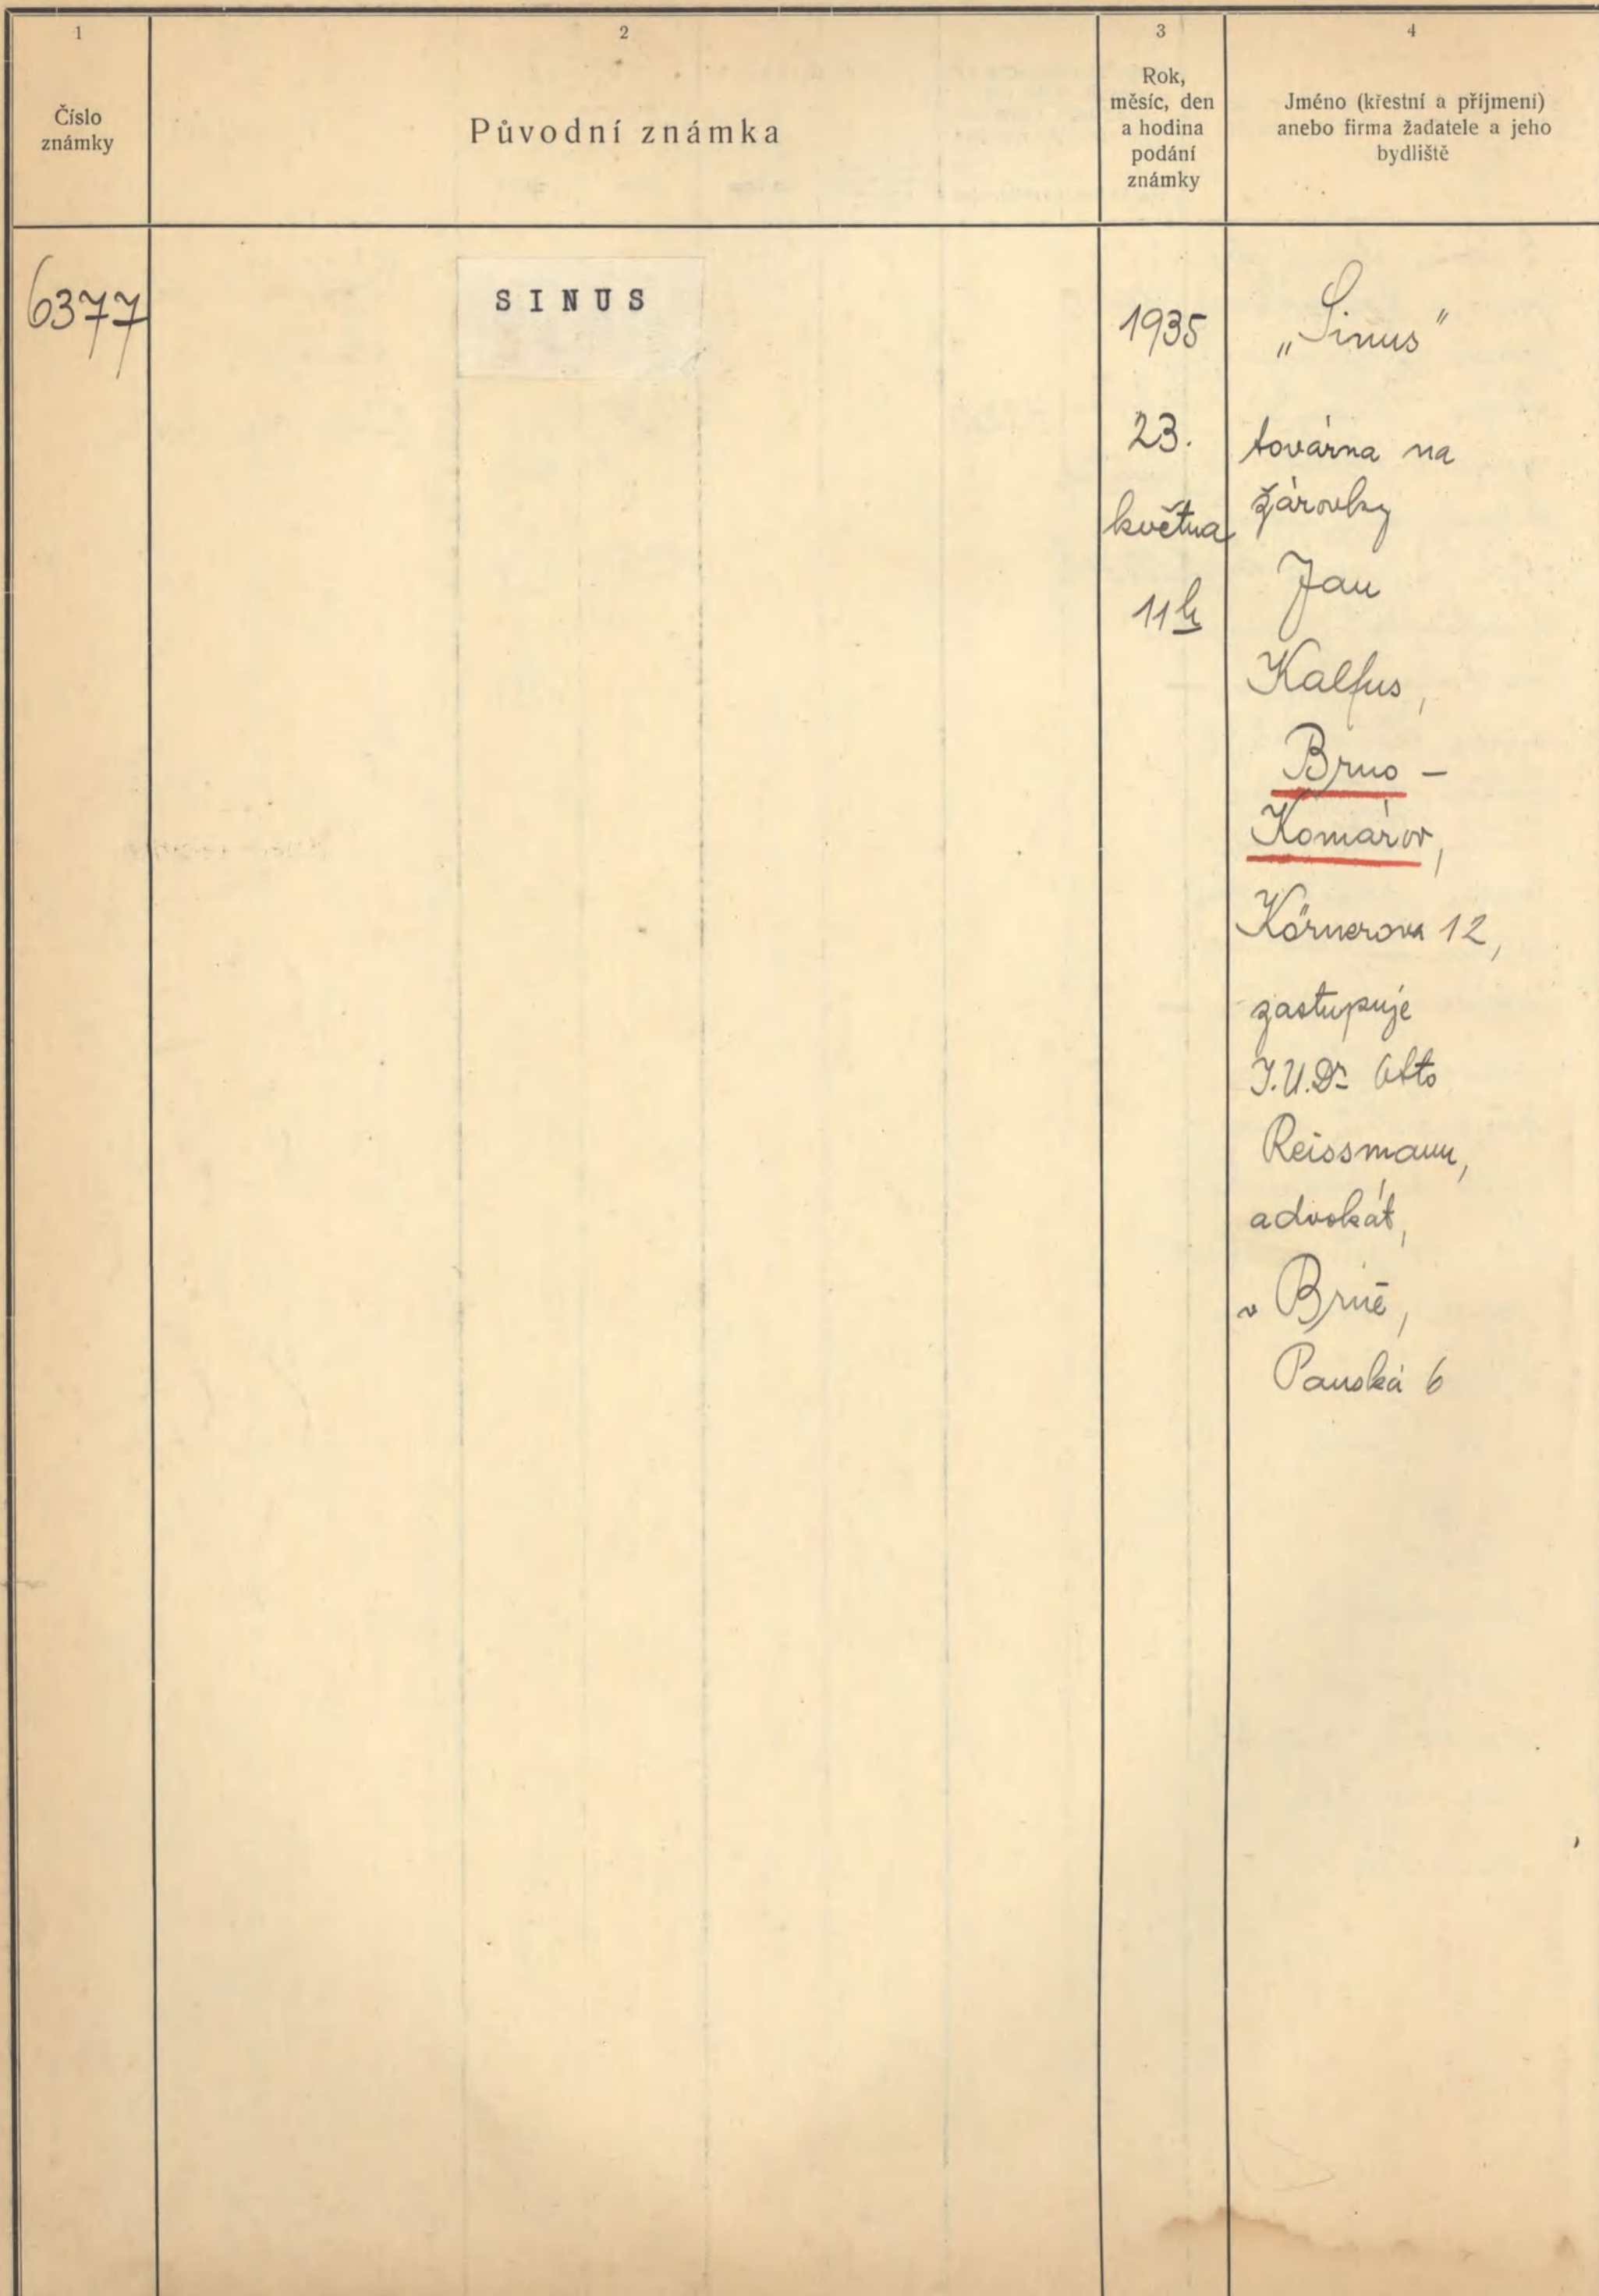 1
Číslo
známky
2
Původní známka
3
Rok,
měsíc, den
a hodina
podání
známky
4
Jméno (křestní a příjmení)
anebo firma žadatele a jeho
bydliště
6377
SINUS
1935
23.
května
11h
„Sinus"
továrna na
žárovky
Jan
Kalfus,
Brno –
Komárov,
Körnerova 12,
zastupuje
J.U.Dr Otto
Reissmann,
advokát,
v Brně,
Panská 6